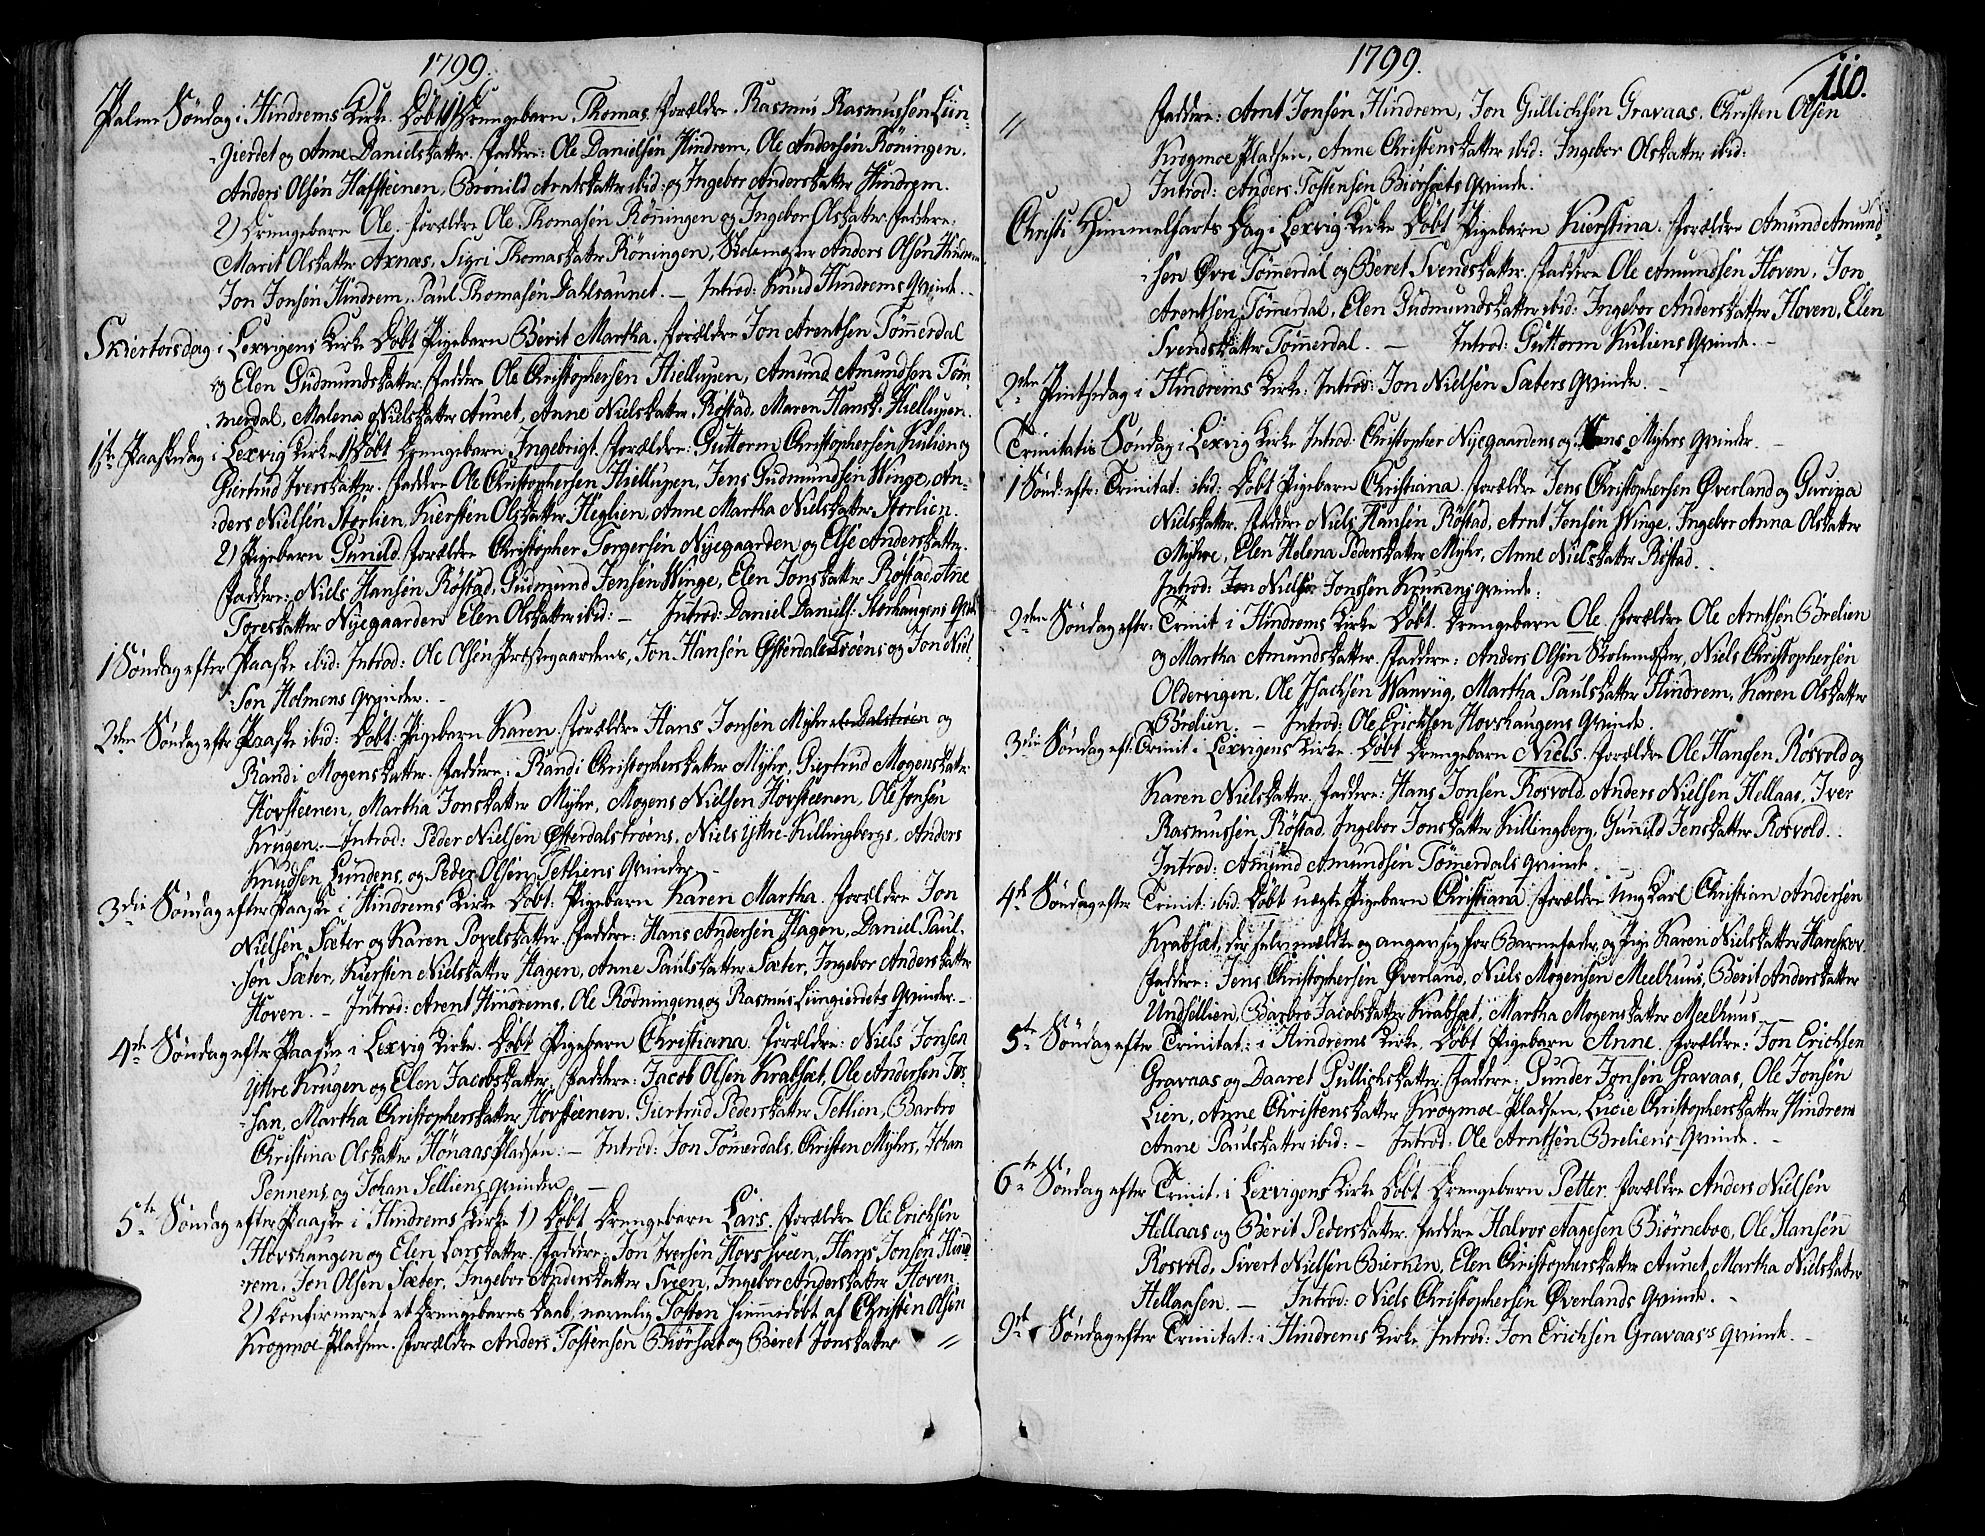 1799.
Palme Søndag i Hindrems Kirke. Døbt 1) Drengebarn Thomas. Forældre. Rasmus Rasmussen Liin-
gierdet og Anne Danielsdatter. Faddere: Ole Danielsen Hindrem, Ole Andersen Röningen.
Anders Olsen Hafsteenen, Brönild Arntsdatter ibid: og Ingebor Andersdatter Hindrem.
2) Drengebarn Ole. Forældre Ole Thomasen Röningen og Ingebor Olsdatter. Faddere:
Marit Olsdatter Axnæs, Sigri Thomasdatter Röningen, Skolemester Anders Olsen Hindrem
Jon Jonsen Hindrem, Paul Thomasen Dahlsaunet. — Introd: Knud Hindrems Qvinde.
Skiertorsdag i Lexvigens Kirke Døbt Pigebarn Berit Martha. Forældre Jon Arentsen Tömmerdal
og Elen Gudmundsdatter. Faddere Ole Christophersen Hiellupen, Amund Amundsen Töm-
merdal, Malena Nielsdatter Aunet, Anne Nielsdatter Röstad, Maren Hansd. Hiellupen.
1ste Paaskedag i Lexvig Kirke 1) Døbt Drengebarn Ingebrigt. Forældre: Guttorm Christophersen Kulien og
Giertrud Iversdatter. Faddere Ole Christophersen Hiellupen, Jens Gudmundsen Winge, An-
ders Nielsen Storlien, Kiersten Olsdatter Heglien, Anne Martha Nielsdatter Storlien.
2) Pigebarn Gunild. Forældre Christopher Torgersen Nyegaarden og Else Andersdatter.
Faddere: Niels Hansen Röstad, Gudmund Jensen Winge, Elen Jonsdatter Röstad, Anne
Toresdatter Nyegaarden Elen Olsdatter ibid: — Introd: Daniel Daniels: Storhaugens Qvinde
1 Søndag efter Paaske ibid: Introd: Ole Olsen Præstegaardens, Jon Hansen Østerdalstrøens og Jon Niel-
sen Holmens Qvinder. —
2den Søndag efter Paaske ibid: Døbt: Pigebarn Karen. Forældre Hans Jonsen Myhr og
Randi Mogensdatter. Faddere: Randi Christophersdatter Myhr, Giertrud Mogensdatter
Hovsteenen, Martha Jonsdatter Myhr, Mogens Nielsen Hovsteenen, Ole Jonsen
Krugen. — Introd: Peder Nielsen Østerdalstrøens, Niels Yttre Killingbergs, Anders
Knudsen Lundens, og Peder Olsen Tethiens Qvinder. —
3die Søndag efter Paaske i Hindrems Kirke Døbt: Pigebarn Karen Martha. Forældre Jon
Nielsen Sæter og Karen Povelsdatter. Faddere: Hans Andersen Hagen, Daniel Paul-
sen Sæter, Kiersten Nielsdatter Hagen, Anne Paulsdatter Sæter, Ingebor Andersdatter
Hoven. — Introd: Arent Hindrems, Ole Rödningens og Rasmus Liingierdets Qvinder. —
4de Søndag efter Paaske i Lexvig Kirke. Døbt Pigebarn Christiana. Forældre: Niels Jonsen
Yttre Krugen og Elen Jacobsdatter. Faddere: Jacob Olsen Krabsæt, Ole Andersen Tos-
san, Martha Christophersdatter Hovsteenen, Giertrud Pedersdatter Tetlien, Barbro
Christina Olsdatter Hönaas Pladsen: — Introd: Jon Tömerdals, Christen Myhrs, Johan
Pennens og Johan Selliens Qvinder. —
5te Søndag efter Paaske i Hindrems Kirke 1) Døbt Drengebarn Lars. Forældre Ole Erichsen
Hovshaugen og Elen Larsdatter. Faddere: Jon Iversen Hovssveen, Hans Jonsen Hind-
rem, Jon Olsen Sæter, Ingebor Andersdatter Sveen, Ingebor Andersdatter Hoven.
2) Confirmeret et Drengebarns Daab, navnlig Tosten hiemmedøbt af Christen Olsen
Krogmoe-Pladsen. Forældre Anders Tostensen Biörsæt og Beret Jonsdatter //
1799.
110.
// Faddere: Arnt Jonsen Hindrem, Jon Gullichsen Gravaas. Christen Olsen
Krogmoe Pladsen, Anne Christensdatter ibid: Ingebor Olsdatter ibid:
Introd: Anders Tostensen Biörsæts Qvinde.
Christi Himmelfarts Dag i Lexvig Kirke Døbt Pigebarn Kierstina. Forældre Amund Amund-
sen Øvre Tömmerdal og Beret Svendsdatter. Faddere Ole Amundsen Hoven, Jon
Arentsen Tömmerdal, Elen Gudmundsdatter ibid: Ingebor Andersdatter Hoven, Elen
Svendsdatter Tömerdal. — Introd: Guttorm Kuliens Qvinde. —
2den Pintsedag i Hindrems Kirke. Introd: Jon Nielsen Sæters Qvinde. —
Trinitatis Søndag i Lexvig Kirke Introd: Christopher Nyegaardens og Hans Myhrs Qvinder. —
1 Sønd: eftr: Trinitat: ibid: Døbt Pigebarn Christiana. Forældre Jens Christophersen Øverland og Gurina
Nielsdatter. Faddere Niels Hansen Röstad, Arnt Jensen Winge, Ingebor Anna Olsdatter
Myhre, Elen Helena Pedersdatter Myhr, Anne Nielsdatter Röstad.
Introd: Niels Jonsen Krugens Qvinde.
2den Søndag eftr: Trinit i Hindrems Kirke Døbt. Drengebarn Ole. Forældre Ole Arntsen Brelien
og Martha Amundsdatter. Faddere: Anders Olsen Skolemester, Niels Christophersen
Oldervigen, Ole Isachsen Wanvüg, Martha Paulsdatter Hindrem, Karen Olsdatter
Brelien. — Introd: Ole Erichsen Hovshaugens Qvinde.
3die Søndag eft: Trinit i Lexvigens Kirke. Døbt Drengebarn Niels. Forældre Ole Hansen Rosvold og
Karen Nielsdatter. Faddere: Hans Jonsen Rosvold, Anders Nielsen Hellaas, Iver
Rasmussen Röstad, Ingebor Jonsdatter Killingberg, Gunnild Jensdatter Rosvold.
Introd: Amund Amundsen Tömerdals Qvinde.
4de Søndag efter Trinit: ibid: Døbt uægte Pigebarn Christiana. Forældre Ung Karl Christian Andersen
Krabsæt, der selv meldte og angav sig for Barnefader, og Pige Karen Nielsdatter Hareskov.
Faddere: Jens Christophersen Øverland, Niels Mogensen Meelhuus, Berit Andersdatter
Undsellien, Barbro Jacobsdatter Krabsæt, Martha Mogensdatter Meelhuus.
5te Søndag efter Trinitat: i Hindrems Kirke. Døbt Pigebarn Anne. Forældre: Jon Erichsen
Gravaas og Daaret Gullichsdatter. Faddere: Gunder Jonsen Gravaas, Ole Jonsen
Lien, Anne Christensdatter Krogmoe-Pladsen, Lucie Christophersdatter Hindrem
Anne Paulsdatter ibid: — Introd: Ole Arntsen Breliens Qvinde. —
6te Søndag efter Trinit. i Lexvigens Kirke Døbt. Drengebarn Petter. Forældre Anders Nielsen
Hellaas og Berit Pedersdatter. Faddere Halvor Aagesen Biørneboe, Ole Hansen
Rosvold, Sivert Nielsen Bierken, Elen Christophersdatter Aunet, Martha Nielsdatter
Hellaasen. — Introd: Niels Christophersen Øverlands Qvinde. —
9de Søndag efter Trinitat: i Hindrems Kirke, Introd: Jon Erichsen Gravaas's Qvinde. —